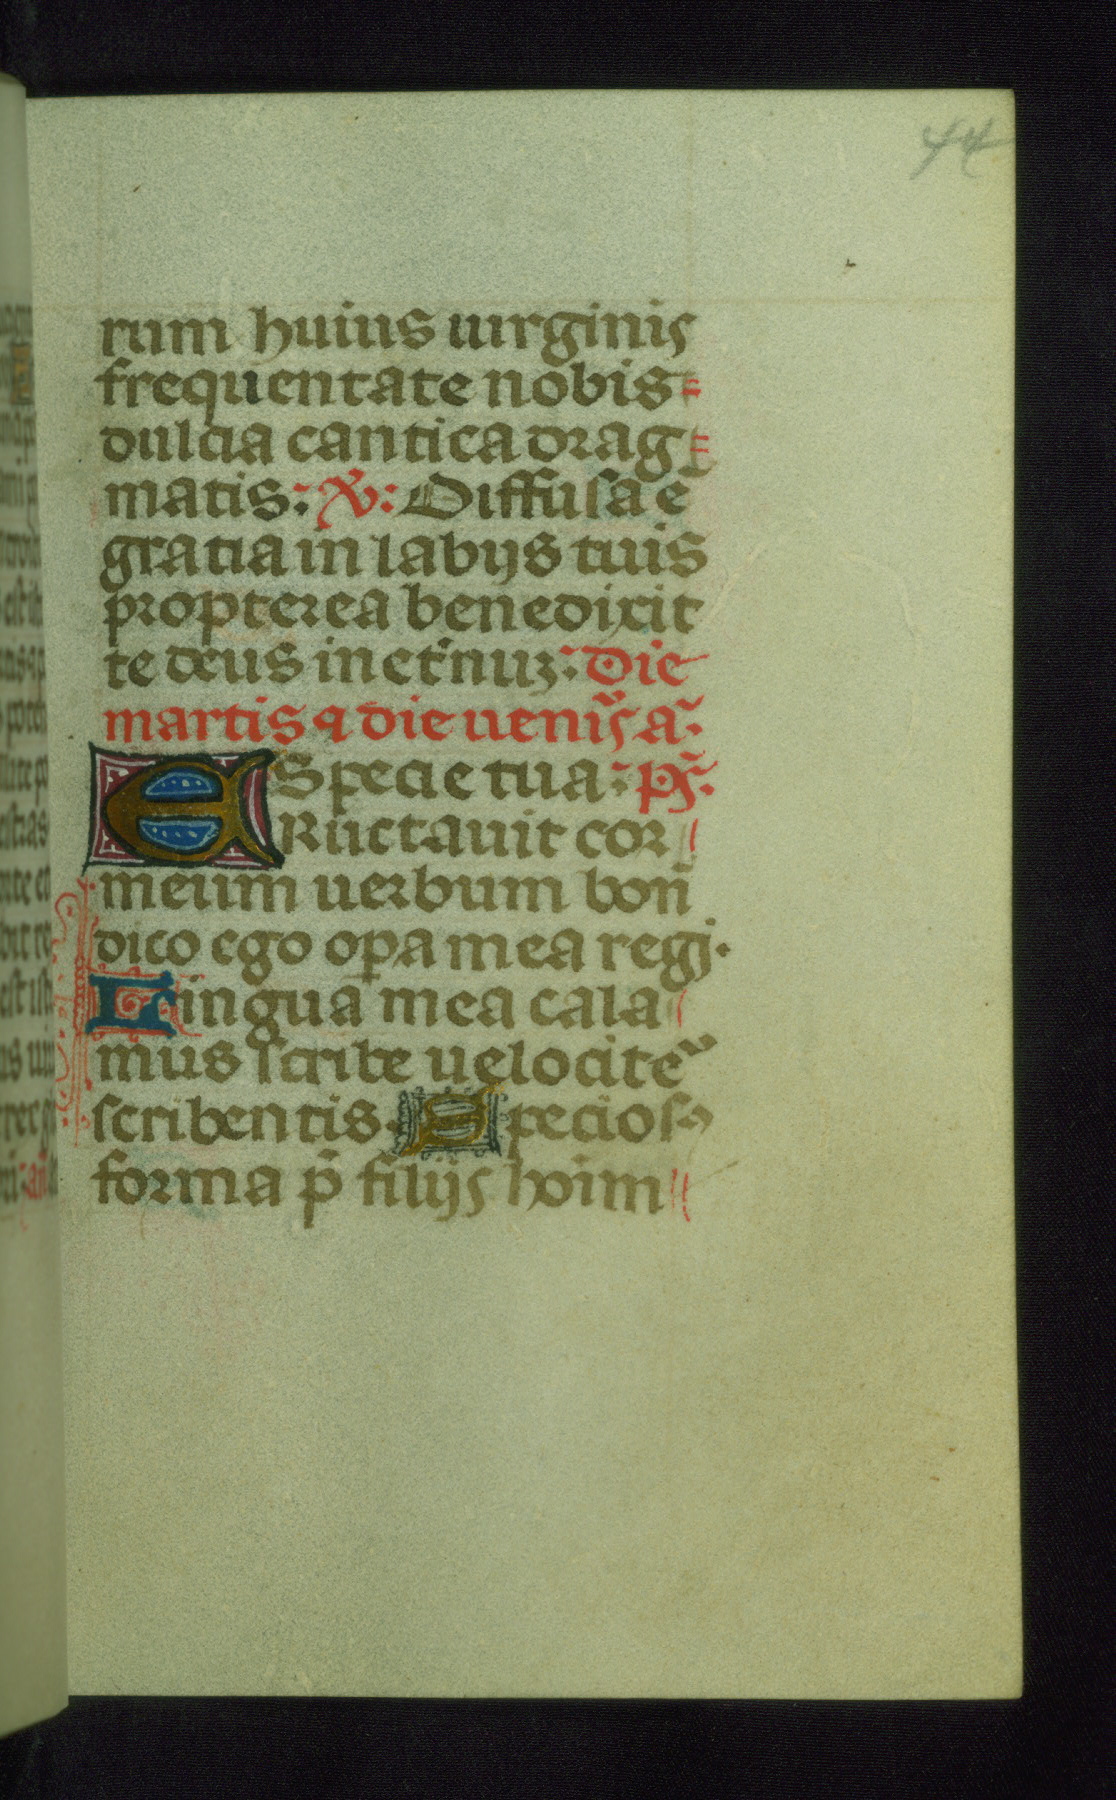 44
rum huius uirginis
frequentate nobis
dulcia cantica drag
matis: ℣: Diffusa e
gratia in labijs tuis
propterea benedixit
te deus in et̃nuz: Die
martis ⁊ die uenĩs añ:
Specie tua: ps̃:
ERuctauit cor
meum uerbum bonũ
dico ego oꝑa mea regi.
Lingua mea cala
mus scribe uelociter̃
scribentis. Specios
forma p̃ filijs hoim